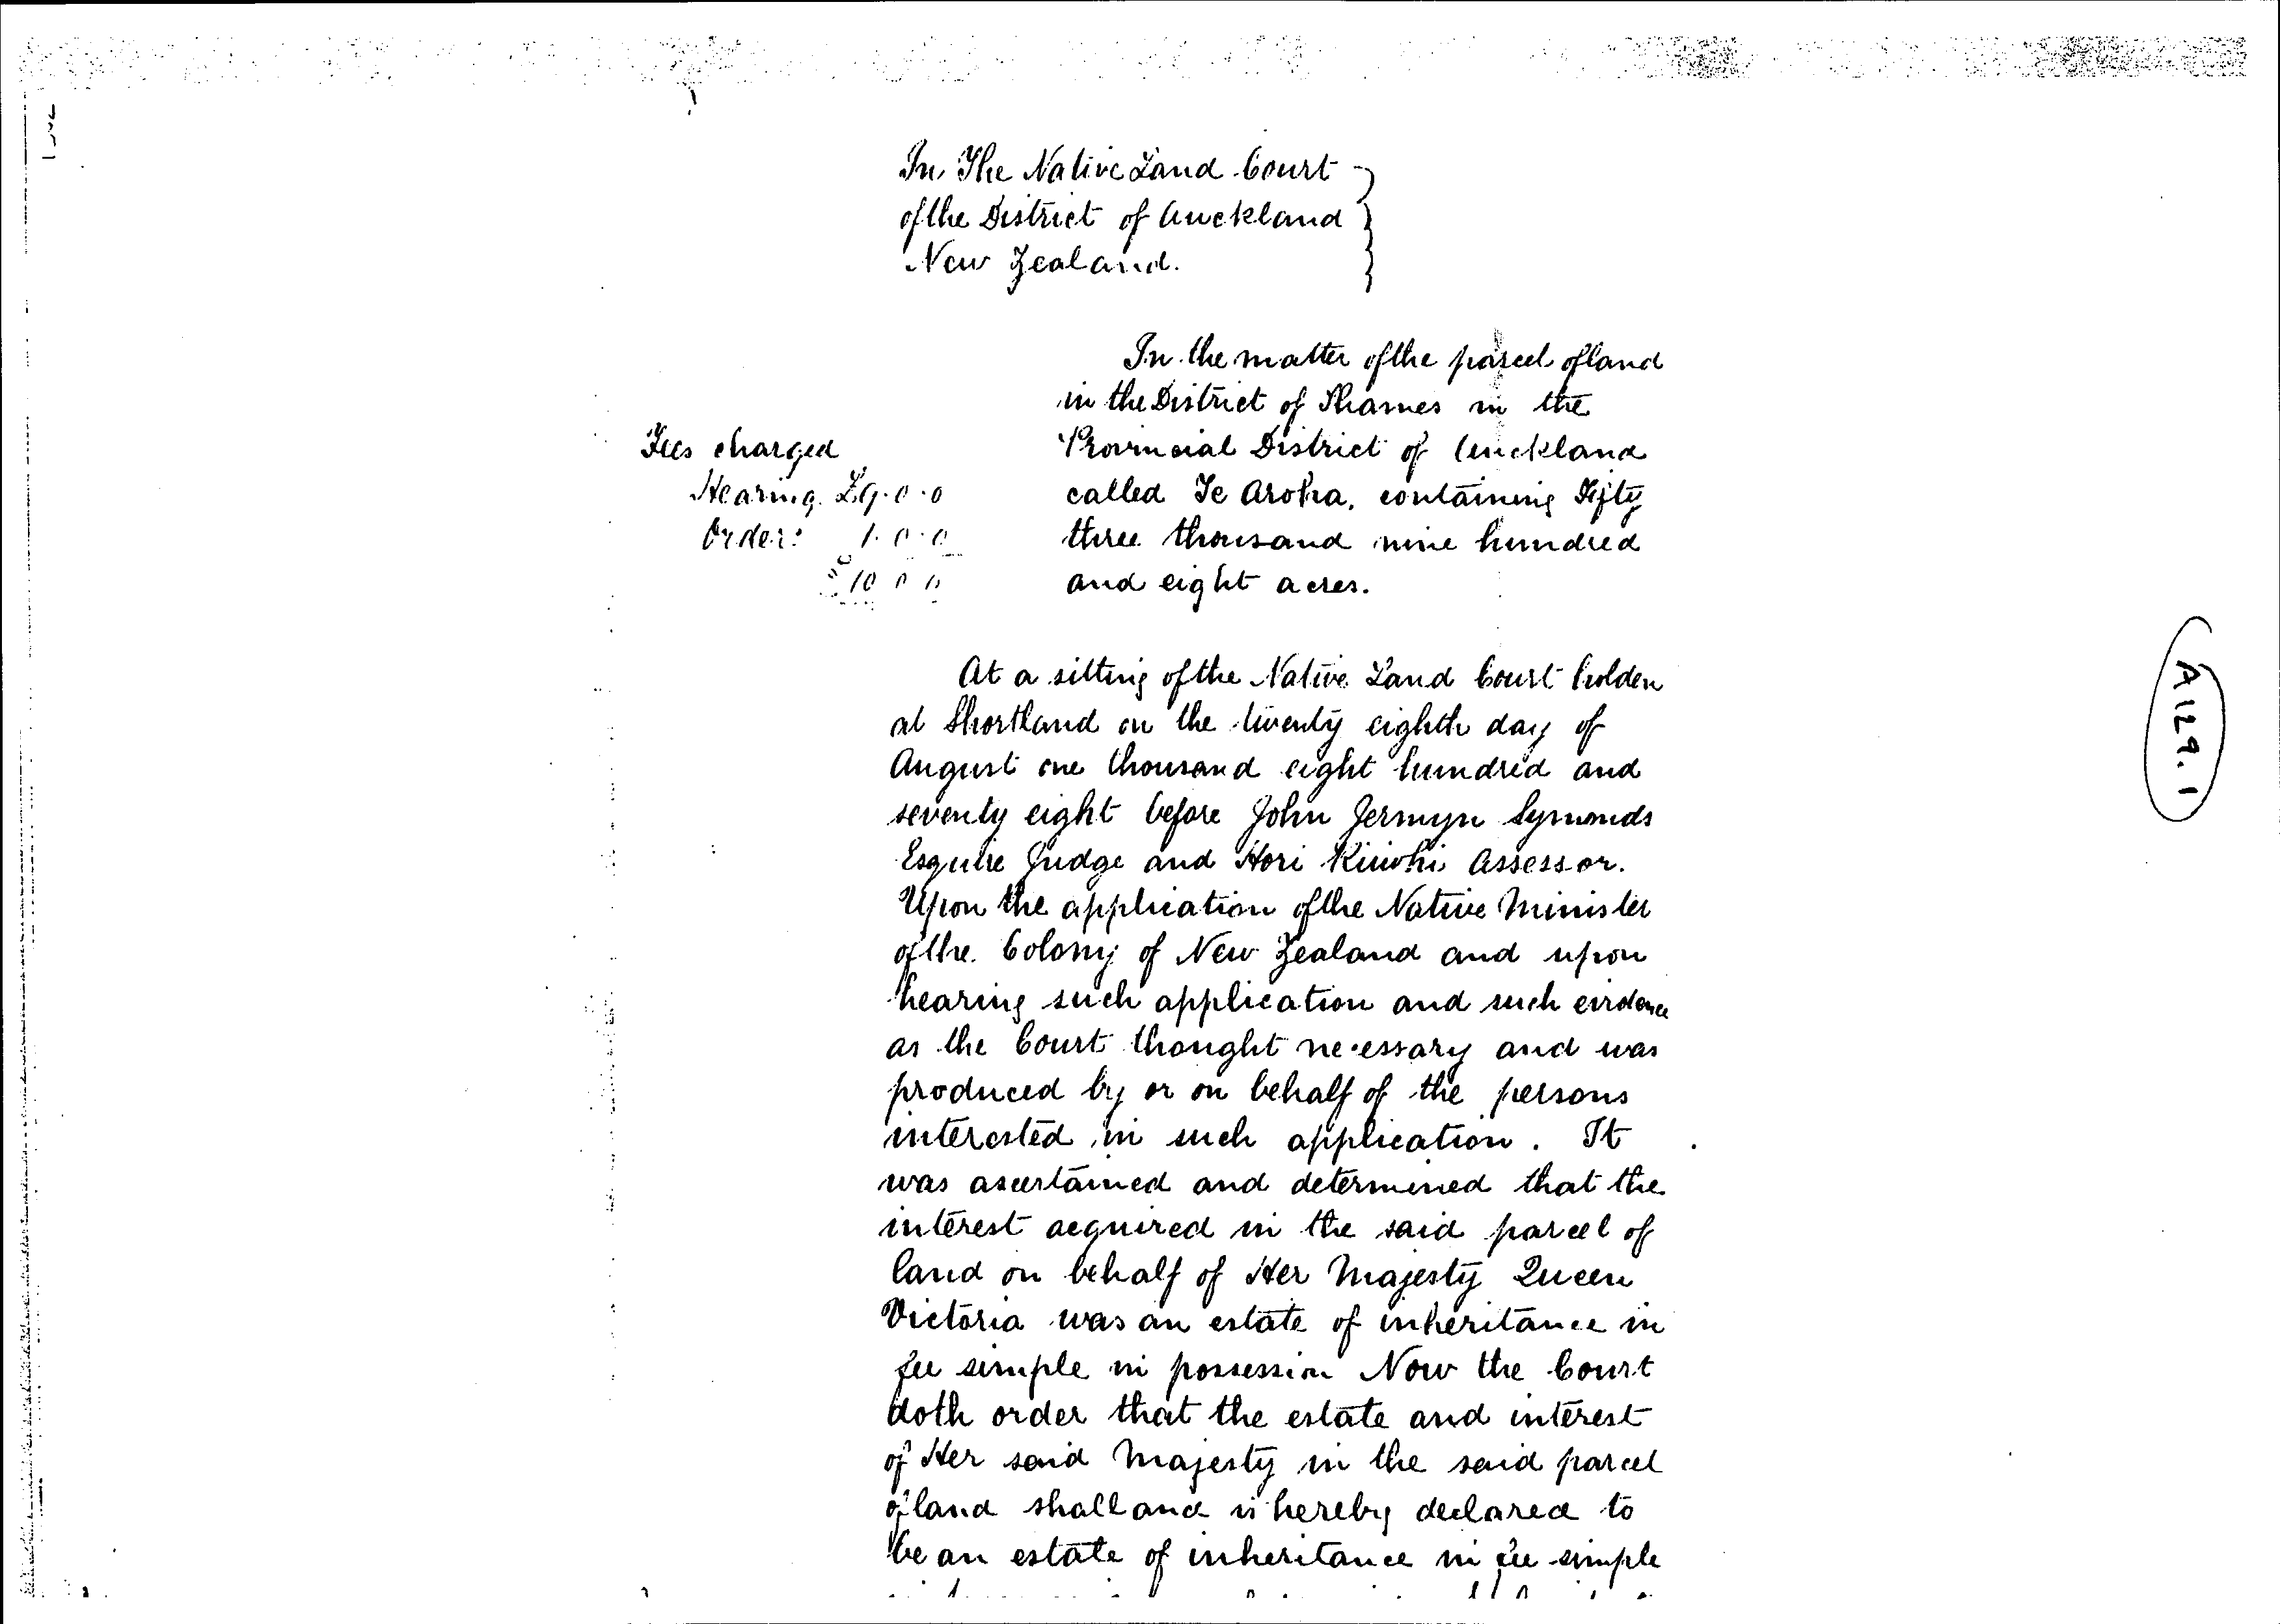 In The Native Land Court
of the District of Auckland
New Zealand.
In the matter of the parcel of land
in the District of Thames in the
Provincial District of Auckland
called Te Aroha, containing Fifty
three thousand nine hundred
and eight acres.
Fees charged
Hearing. £9.0.0
Order: 1.0.0
£10 0 0
At a sitting of the Native Land Court holden
at Shortland on the twenty eighth day of
August one thousand eight hundred and
seventy eight before John Jermyn Symonds
Esquire Judge and Hori Assessor.
Upon the application of the Native Minister
of the Colony of New Zealand and upon
hearing such application and such evidence
as the Court thought necessary and was
produced by or on behalf of the persons
interested in such application. It
was ascertained and determined that the
interest acquired in the said parcel of
land on behalf of Her Majesty Queen
Victoria was an estate of inheritance in
fee simple in possession Now the Court
doth order that the estate and interest
of Her said Majesty in the said parcel
of land shall and is hereby declared to
be an estate of inheritance in fee simple
A129.1